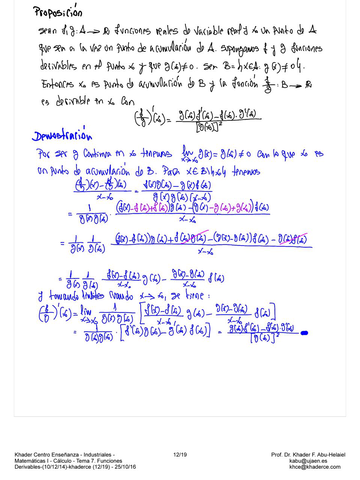 Proposición
Sean f, g: A → ℝ funciones reales de variable real y x₀ un punto de A
que sea a la vez un punto de acumulación de A. Supongamos f y g funciones
derivables en el punto x₀ y que g(x₀) ≠ 0. Sea B = {x∈A: g(x) ≠ 0}.
Entonces x₀ es punto de acumulación de B y la función f/g : B → ℝ
es derivable en x₀ con
(f/g)'(x₀) = (g(x₀)f'(x₀) - f(x₀)·g'(x₀)) / [g(x₀)]²
Demostración
Por ser g continua en x₀ tenemos lim x→x₀ g(x) = g(x₀) ≠ 0 con lo que x₀ es
un punto de acumulación de B. Para x∈B\{x₀} tenemos
((f/g)(x) - (f/g)(x₀)) / (x-x₀) = (f(x)g(x₀) - g(x)f(x₀)) / (g(x)g(x₀)(x-x₀))
= 1/(g(x)g(x₀)) · ((f(x)-f(x₀)+f(x₀))g(x₀) - (g(x)-g(x₀)+g(x₀))f(x₀)) / (x-x₀)
= 1/g(x) · 1/g(x₀) · ((f(x)-f(x₀))g(x₀) + f(x₀)g(x₀) - (g(x)-g(x₀))f(x₀) - g(x₀)f(x₀)) / (x-x₀)
= 1/g(x) · 1/g(x₀) · (f(x)-f(x₀))/(x-x₀) g(x₀) - (g(x)-g(x₀))/(x-x₀) f(x₀)
y tomando límites cuando x → x₀, se tiene:
(f/g)'(x₀) = lim x→x₀ 1/(g(x)g(x₀)) [(f(x)-f(x₀))/(x-x₀) g(x₀) - (g(x)-g(x₀))/(x-x₀) f(x₀)]
= 1/(g(x₀)g(x₀)) · [f'(x₀)g(x₀) - g'(x₀)f(x₀)] = (g(x₀)f'(x₀) - f(x₀)·g'(x₀)) / [g(x₀)]²
Khader Centro Enseñanza - Industriales -
Matemáticas I - Cálculo - Tema 7. Funciones
Derivables-(10/12/14)-khaderce (12/19) - 25/10/16
12/19
Prof. Dr. Khader F. Abu-Helaiel
kabu@ujaen.es
khce@khaderce.com